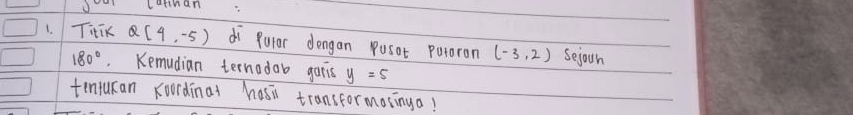 Soal Latihan :
1. Titik Q (4,-5) di putar dengan pusat putaran (-3,2) sejauh
180°. Kemudian terhadab garis y = 5
tentukan koordinat hasil transformasinya !